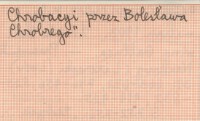 Chrobacyi przez Bolesława
Chrobrego".